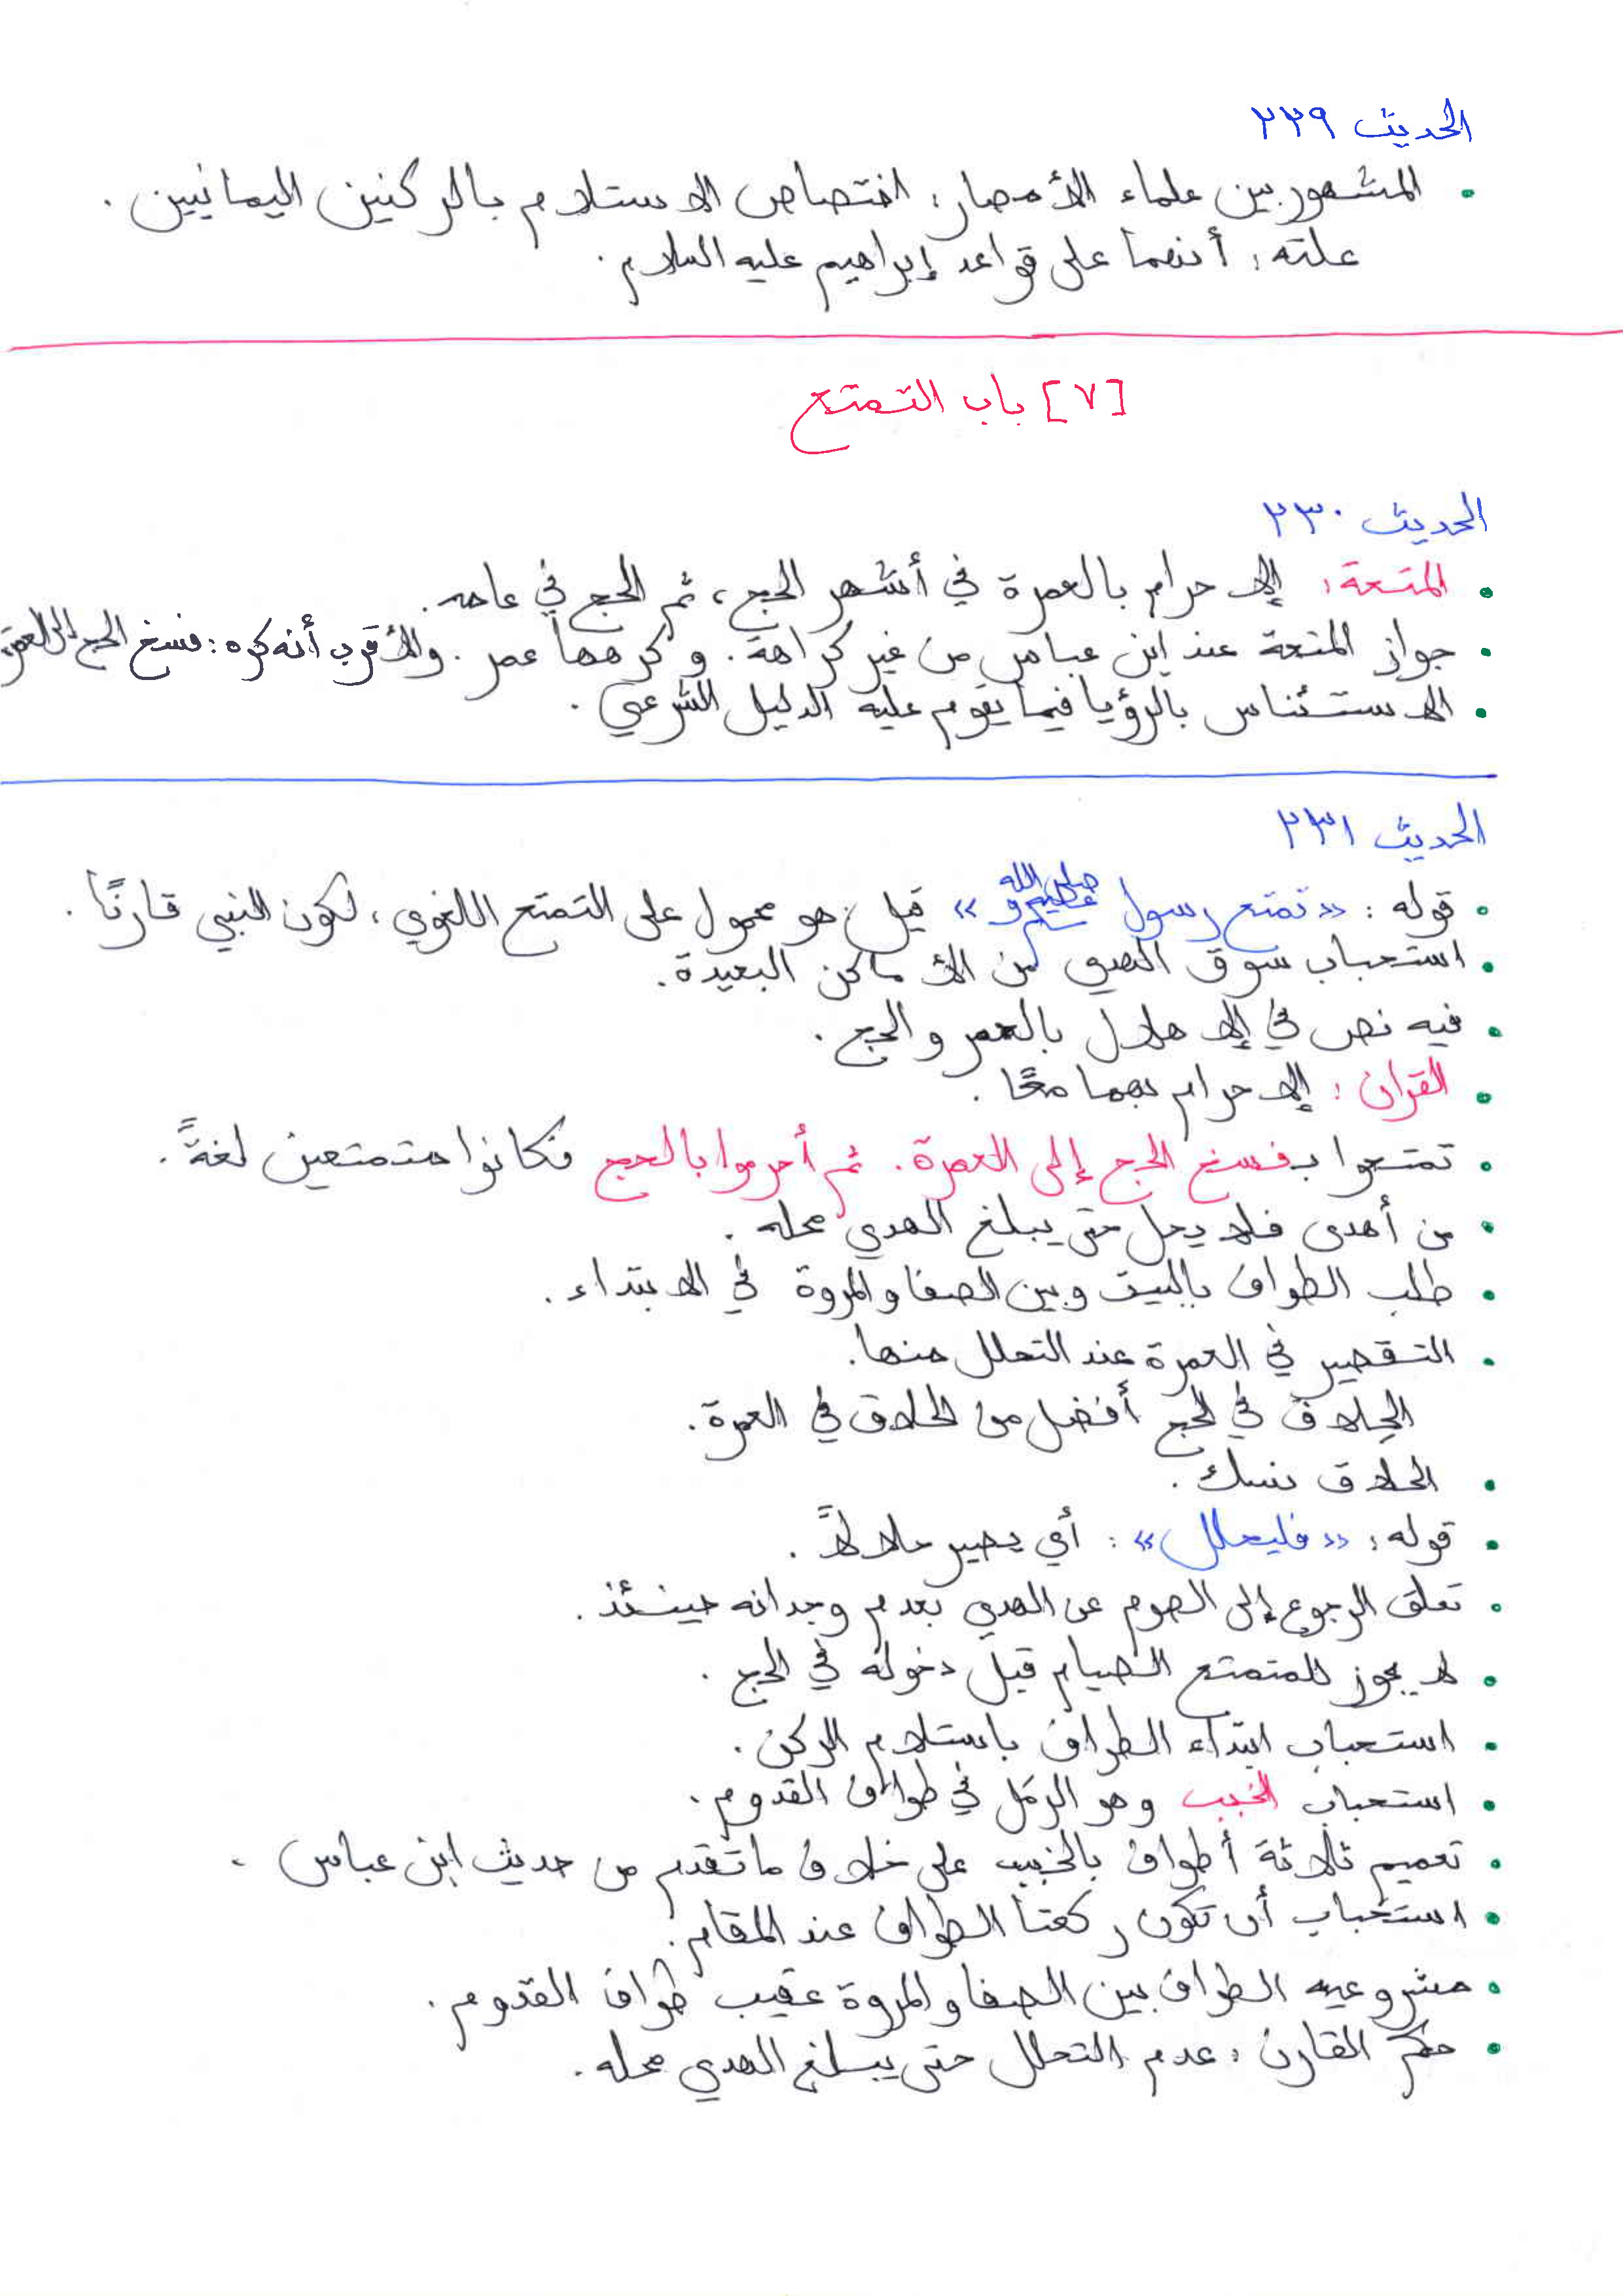 الحديث ٢٢٩
• المشهور بين علماء الأمصار: اختصاص الاستلام بالركنين اليمانيين.
علته: أنهما على قواعد إبراهيم عليه السلام.
[٧] باب التمتع
الحديث ٢٣٠
• المتعة: الإحرام بالعمرة في أشهر الحج، ثم الحج في عامه.
• جواز المتعة عند ابن عباس من غير كراهة. وكرهها عمر. والأقرب أنه كره: فسخ الحج إلى العمرة
• الاستئناس بالرؤيا فيما يقوم عليه الدليل الشرعي.
الحديث ٢٣١
• قوله: «تمتع رسول الله صلى الله عليه وسلم» قيل: هو محمول على التمتع اللغوي، لكون النبي قارنًا.
• استحباب سوق الهدي من الأماكن البعيدة.
• فيه نص في الإهلال بالعمر والحج.
• القران: الإحرام بهما معًا.
• تمتعوا بفسخ الحج إلى العمرة. ثم أحرموا بالحج فكانوا متمتعين لغةً.
• من أهدى فلا يحل حتى يبلغ الهدي محله.
• طلب الطواف بالبيت وبين الصفا والمروة في الابتداء.
• التقصير في العمرة عند التحلل منها.
الحِلاق في الحج أفضل من الحلاق في العمرة.
• الحلاق نسك.
• قوله: «فليحلل»: أي يصير حلالاً.
• تعلق الرجوع إلى الصوم عن الهدي بعدم وجدانه حينئذ.
• لا يجوز للمتمتع الصيام قبل دخوله في الحج.
• استحباب ابتداء الطواف باستلام الركن.
• استحباب الخبب وهو الرمَل في طواف القدوم.
• تعميم ثلاثة أطواف بالخبب على خلاف ما تقدم من حديث ابن عباس.
• استحباب أن تكون ركعتا الطواف عند المقام.
• مشروعيه الطواف بين الصفا والمروة عقيب طواف القدوم.
• حكم القارن: عدم التحلل حتى يبلغ الهدي محله.